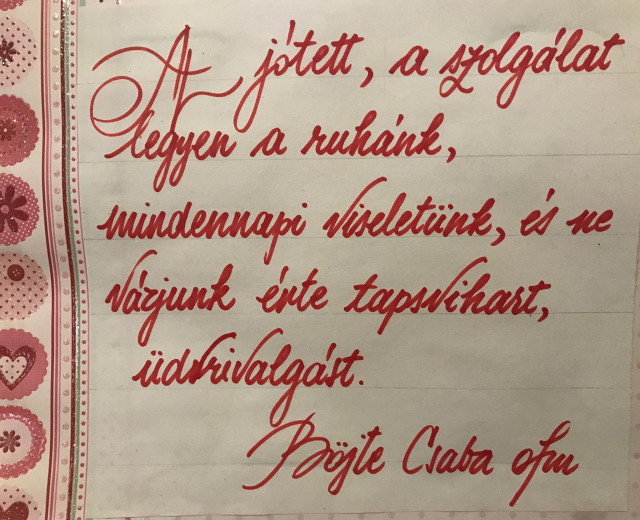 A jótett, a szolgálat
legyen a ruhánk,
mindennapi viseletünk, és ne
várjunk érte tapsvihart,
üdvrivalgást.
Böjte Csaba ofm